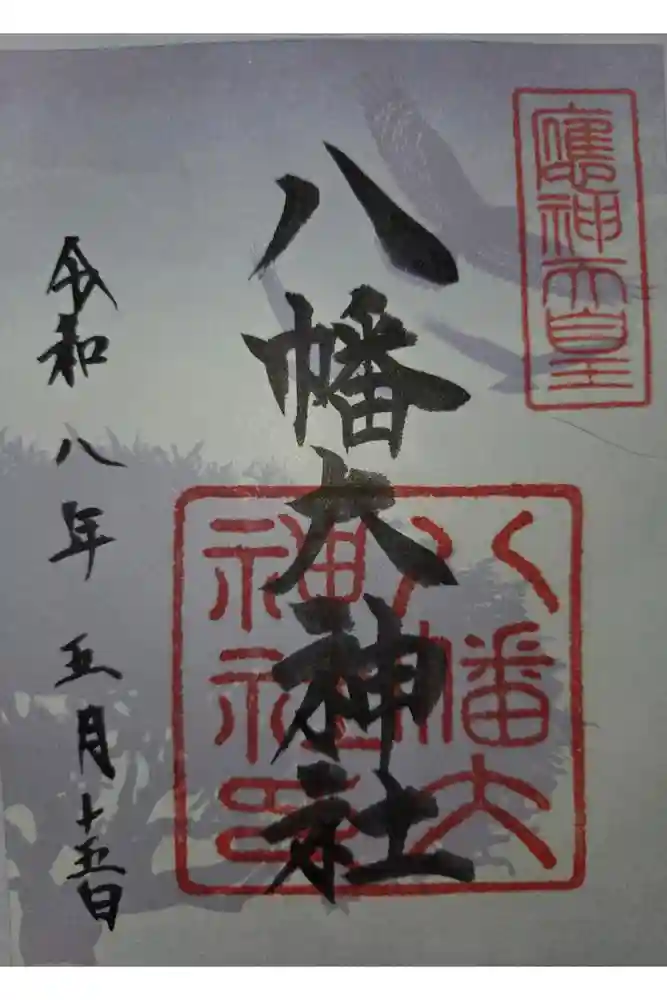 應神天皇
八幡大神社
八幡大
神社印
令和八年五月十五日